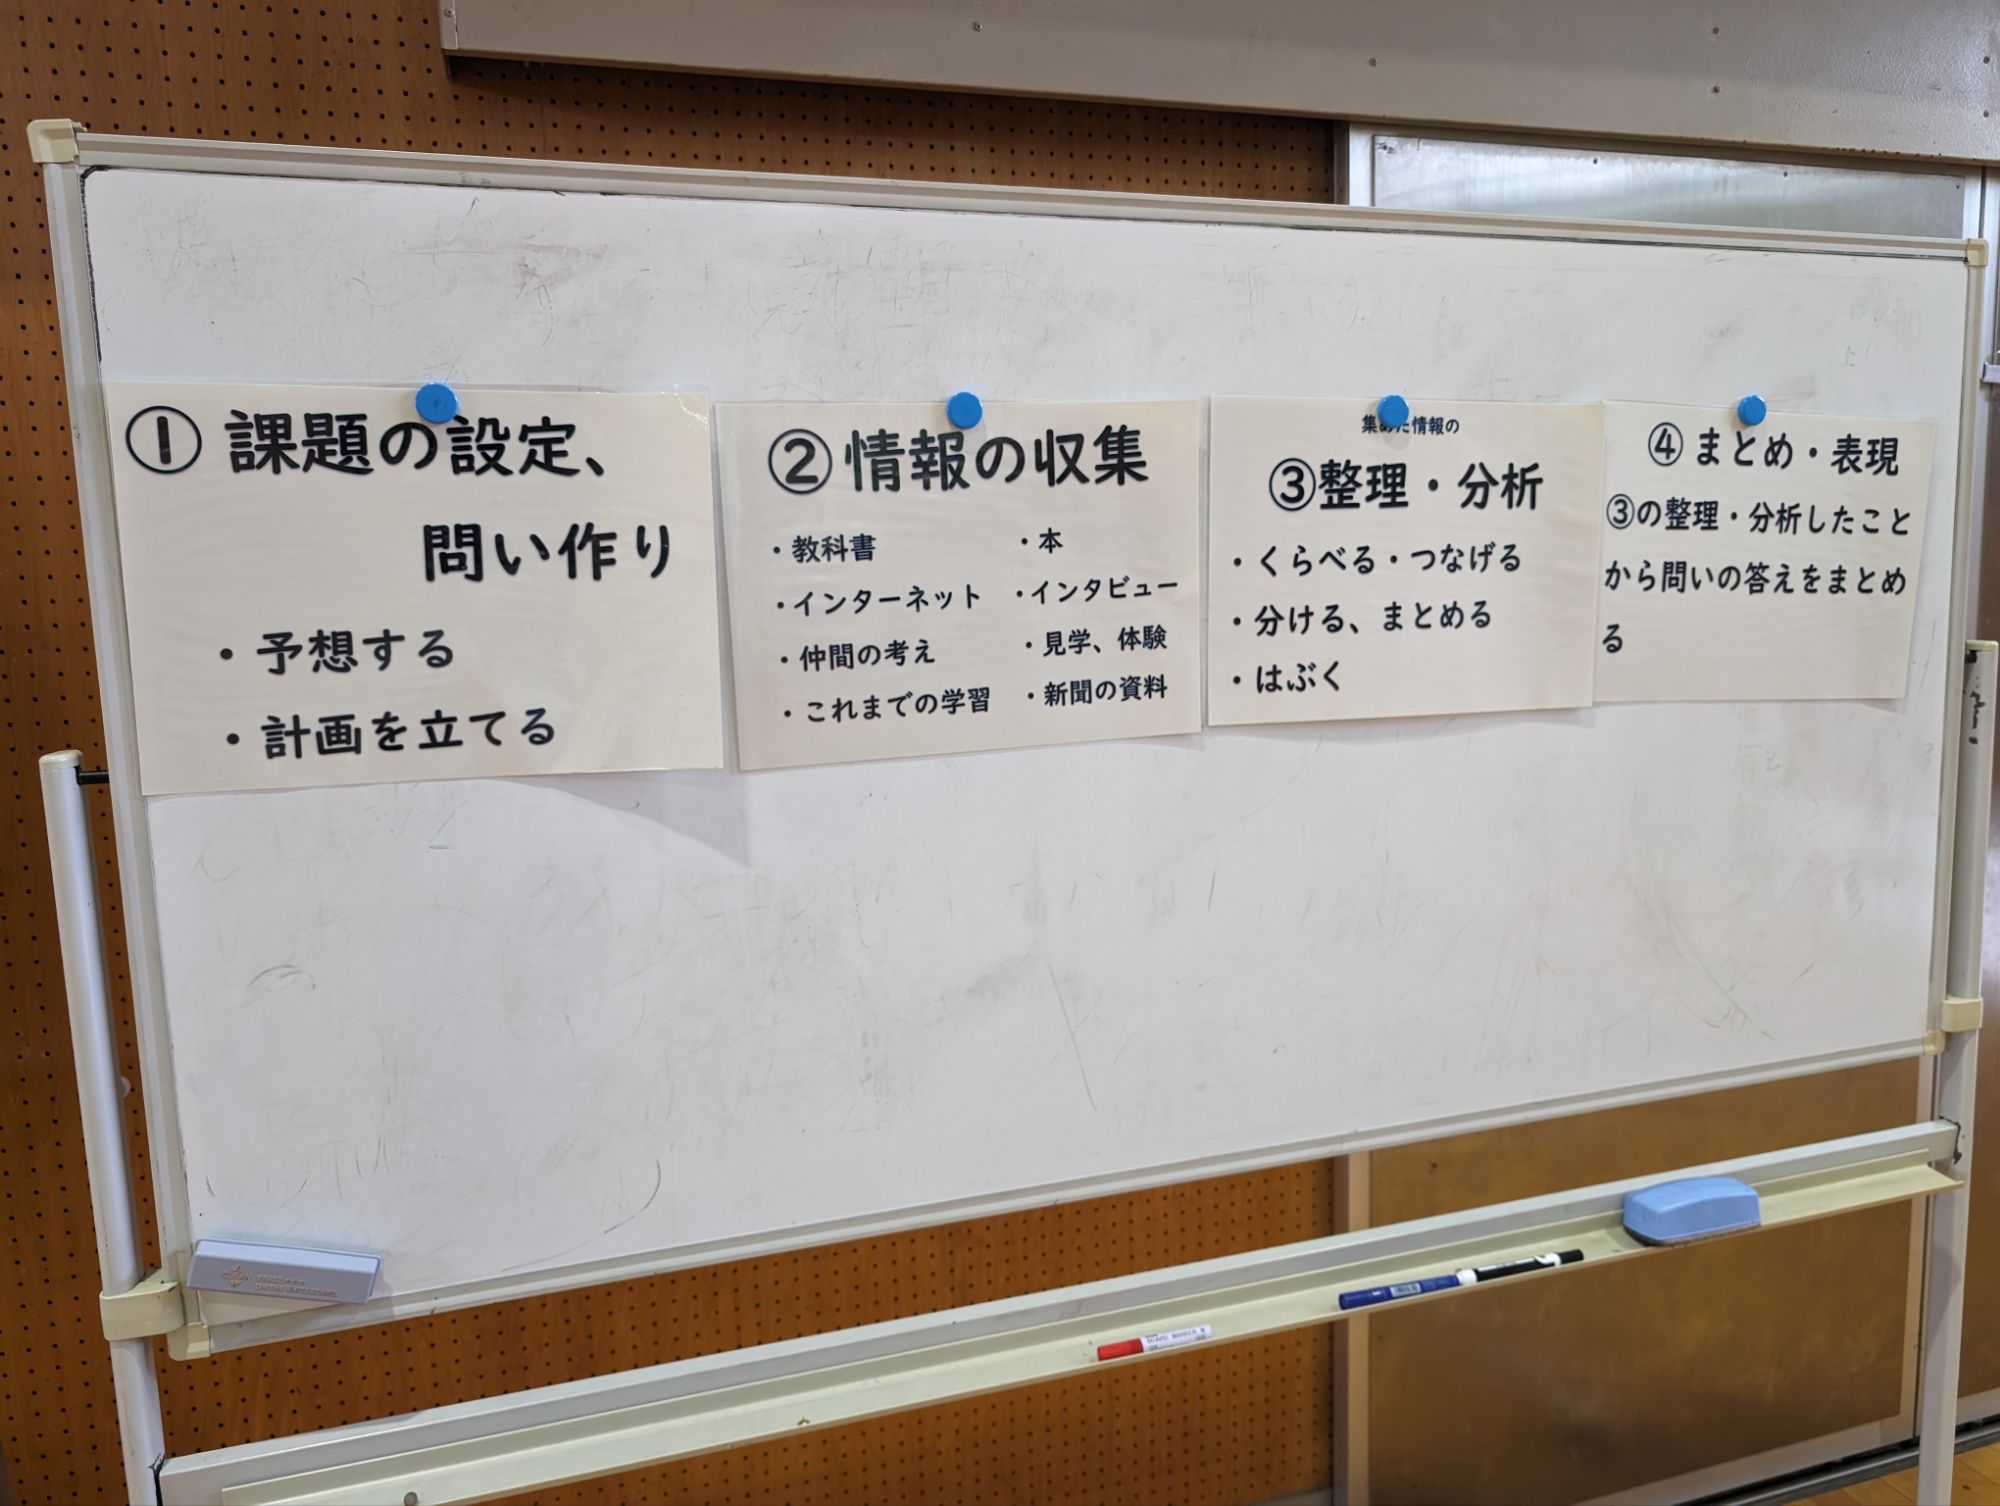 ① 課題の設定、
問い作り
・予想する
・計画を立てる
② 情報の収集
・教科書
・インターネット
・仲間の考え
・これまでの学習
・本
・インタビュー
・見学、体験
・新聞の資料
集めた情報の
③整理・分析
・くらべる・つなげる
・分ける、まとめる
・はぶく
④ まとめ・表現
③の整理・分析したこと
から問いの答えをまとめ
る
BOARD MARKER